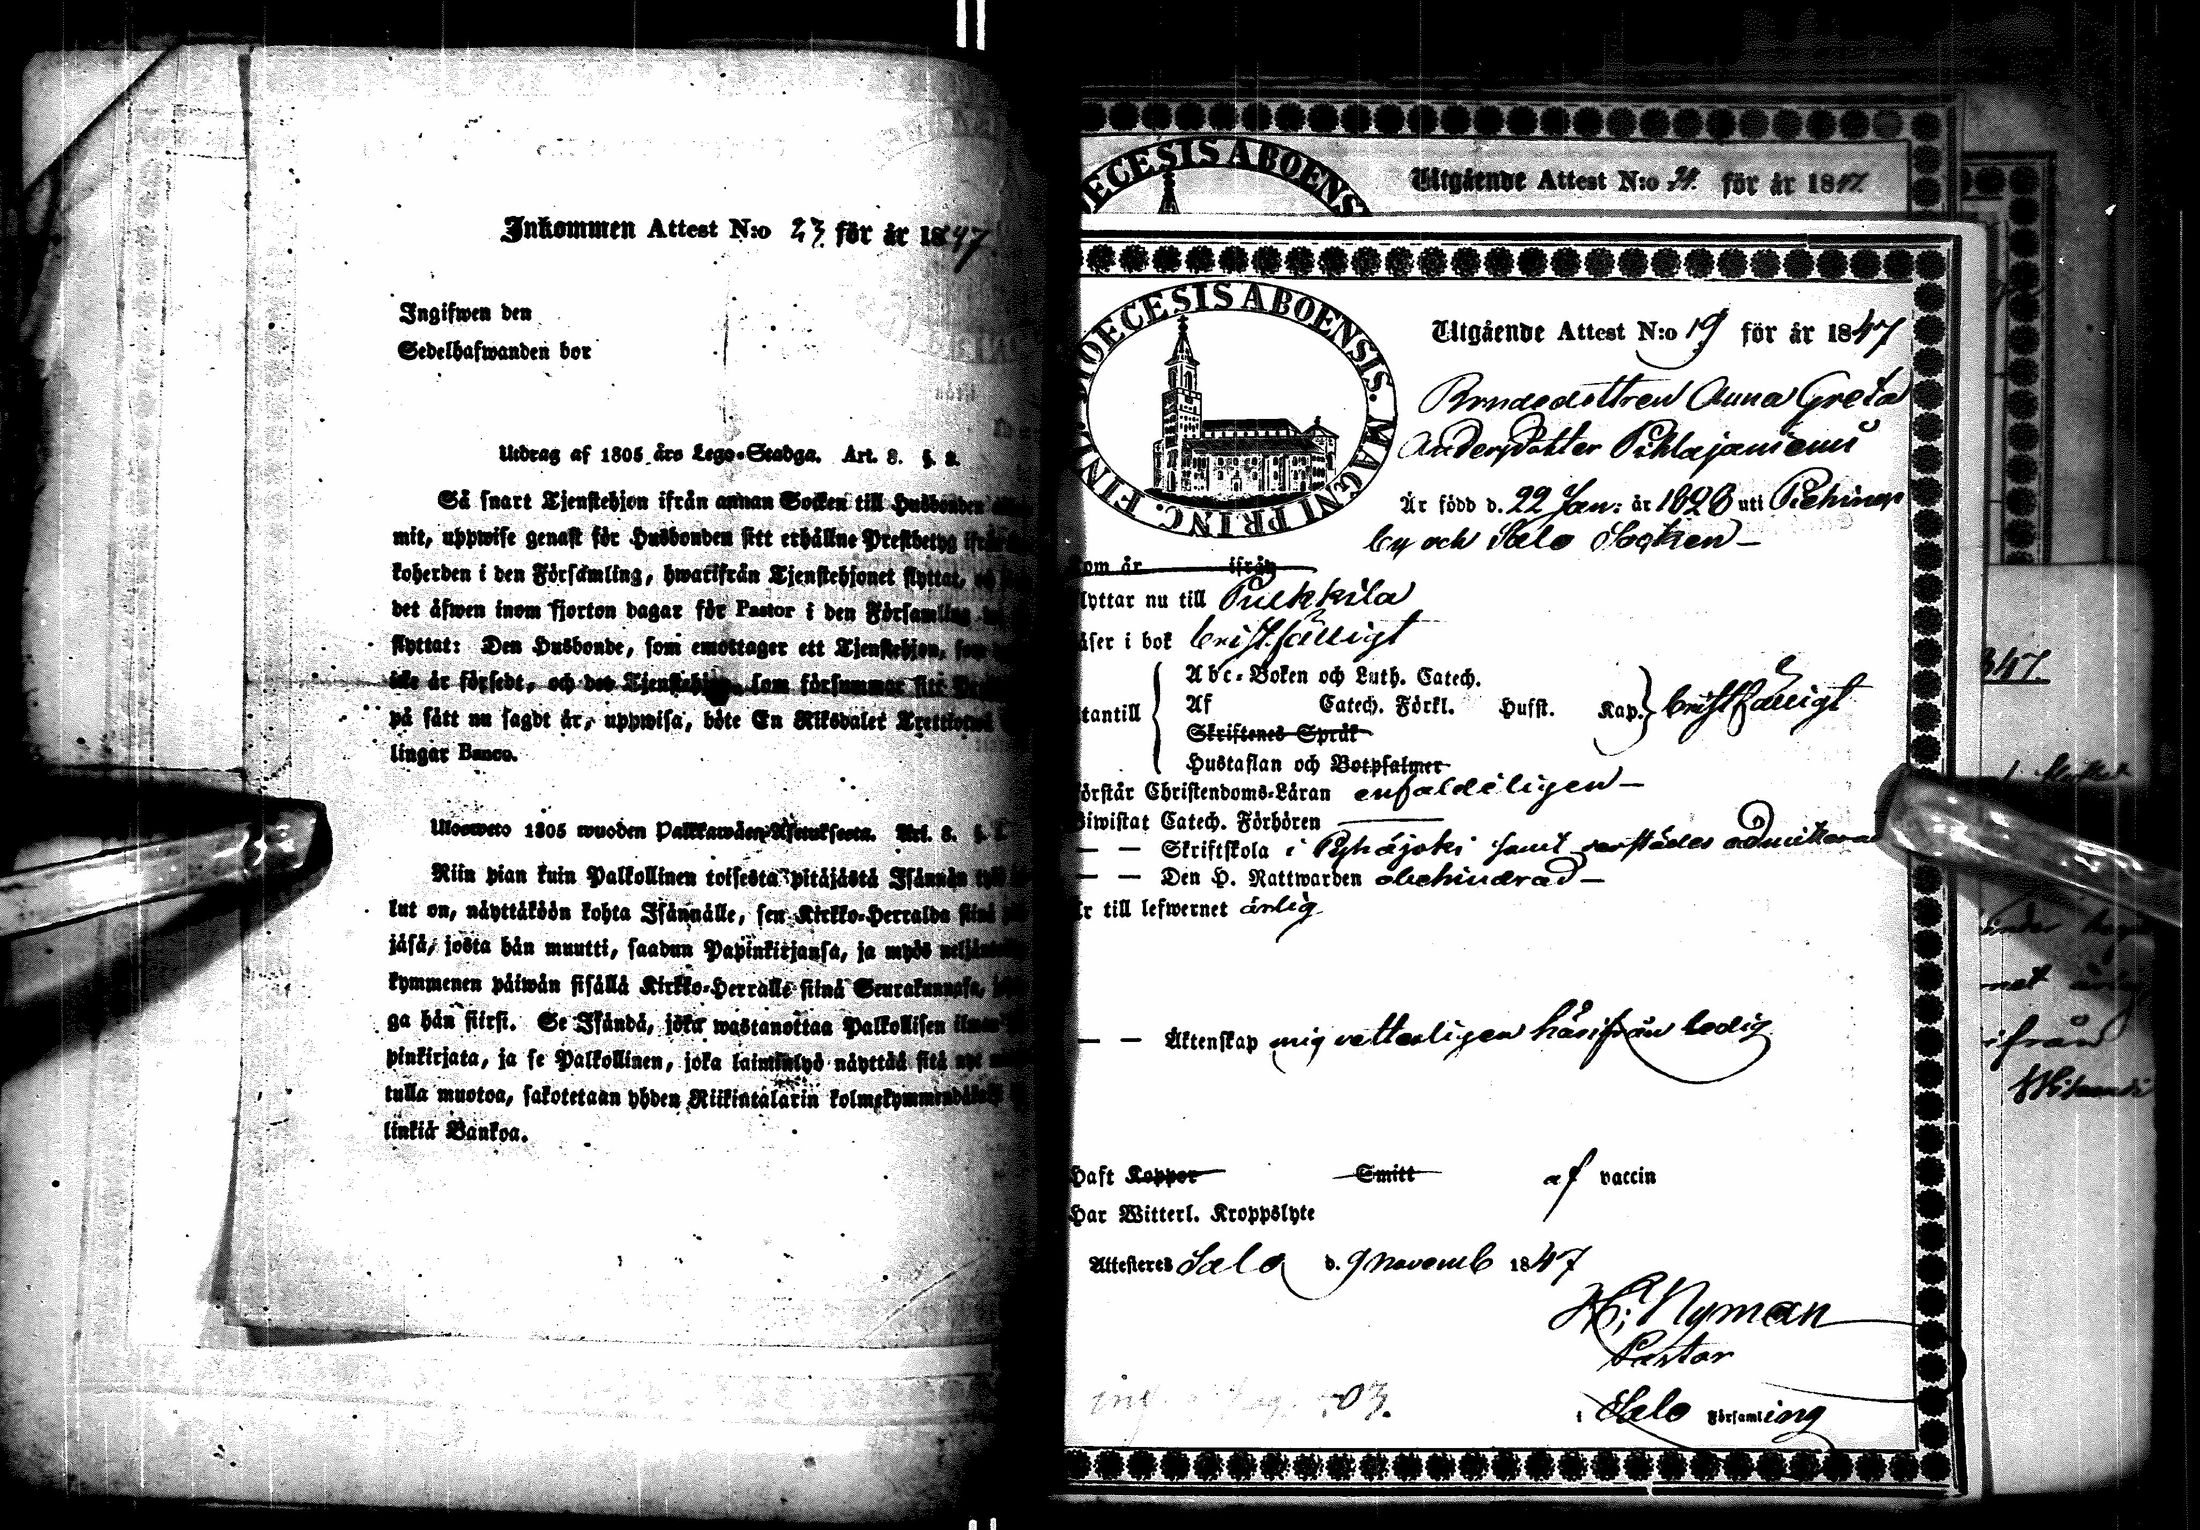 Inkommen Attest N:o 23 för år 1847
Ingifwen den
Sedelhafwanden bor
Utdrag af 1805 års Lego-Stadga. Art. 8. §. 2.
Så snart Tjenstehjon ifrån annan Socken till Husbonden
mit, uppwise genast för Husbonden sitt erhållne Prestbetyg ifrån
koherden i den Församling, hwarifrån Tjenstehjonet flyttat,
det äfwen inom fjorton dagar för Pastor i den Församling
flyttat: Den Husbonde, som emottager ett Tjenstehjon, som
icke är försedt, och det Tjenstehjon, som försummar sitt
på sätt nu sagdt är, uppwisa, böte En Riksdaler Trettiotwå
lingar Banco.
Ulosweto 1805 wuoden Palkkawäen-Asetuksesta. Art. 8. §.
Niin pian kuin Palkollinen toisesta pitäjästä Isännän
kut on, näyttäköön kohta Isännälle, sen Kirkko-Herralda siinä
jäsä, josta hän muutti, saadun Papinkirjansa, ja myös
kymmenen päiwän sisällä Kirkko-Herralle siinä Seurakunnasa,
ga hän siirsi. Se Isändä, joka wastanottaa Palkollisen ilman
pinkirjata, ja se Palkollinen, joka laiminlyö näyttää sitä nyt
tulla muotoa, sakotetaan yhden Riikintalarin kolmekymmendäkaksi
linkiä Bankoa.
DECESIS ABOENS
Utgående Attest N:o 21. för år 1847.
DIOECESIS ABOENSIS. MAGNI PRINC. FINL.
Utgående Attest N:o 19 för år 1847
Bondedottren Anna Greta
Andersdotter Pihlajaniemi
Är född d. 22 Jan: år 1828 uti Piehinge
by och Salo Socken —
som är ifrån
lyttar nu till Pulkkila
äser i bok bristfälligt
tantill
Abc-Boken och Luth. Catech.
Af Catech. Förkl. Husst. Kap. bristfälligt
Skriftenes Språk
Hustaflan och Botpsalmer
örstår Christendoms-Läran enfaldeligen —
Biwistat Catech. Förhören
— — Skriftskola i Pyhäjoki samt derstädes admitterad
— — Den H. Nattwarden obehindrad —
r till lefwernet ärlig
— — Äktenskap mig vetterligen härifrån ledig
Haft Koppor Smitt af vaccin
Har Witterl. Kroppslyte
Attesteres Salo d. 9 Novemb 1847
H; Nyman
Pastor
i Salo Församling
03.
847.
ifrån